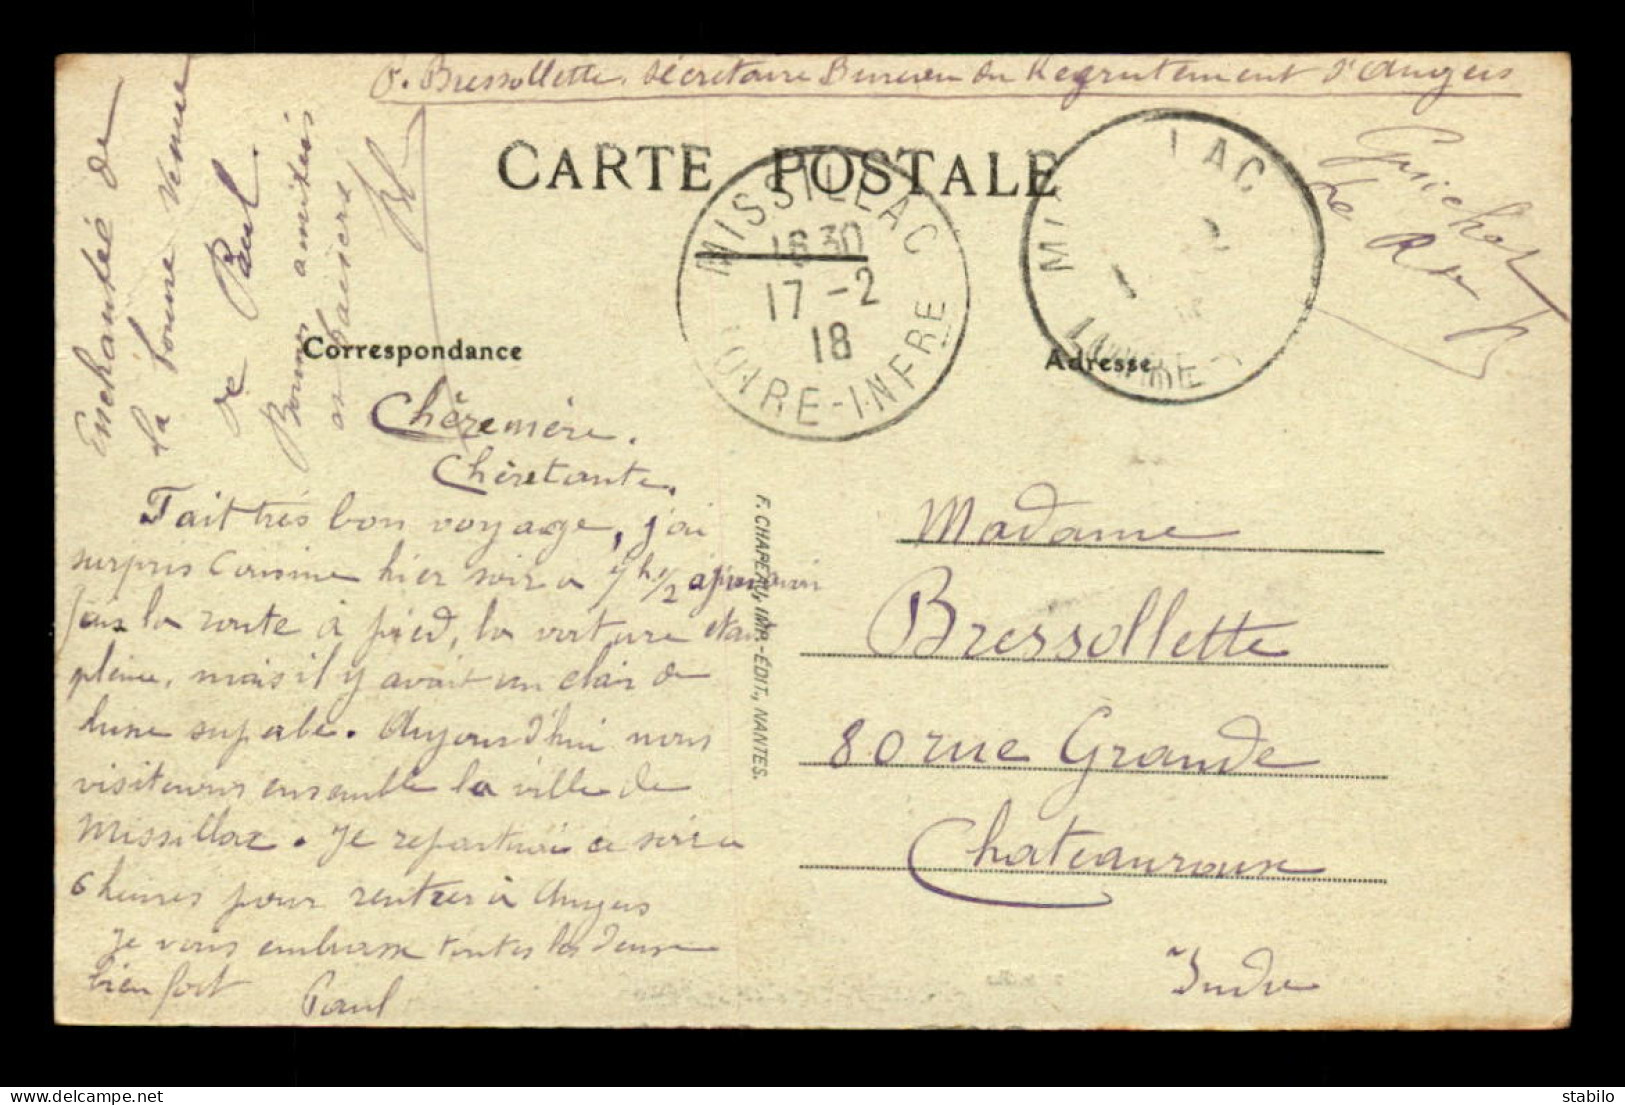 P. Bressollette. Secrétaire Bureau du Recrutement d'Angers
CARTE POSTALE
MISSILLAC
16 30
17 -2
18
LOIRE-INFRE
LAC
Correspondance
Adresse
Enchantée de
la bonne venue
de Paul.
Bonnes amitiés
et baisers
Chère mère.
Chère tante.
Fait très bon voyage, j'ai
surpris Cousine hier soir à 9h 1/2
fais la route à pied, la voiture etait
pleine, mais il y avait un clair de
lune superbe. Aujourd'hui nous
visiterons ensemble la ville de
Missillac. Je repartirai ce soir à
6 heures pour rentrer à Angers
Je vous embrasse toutes les deux
bien fort Paul
F. CHAPEAU, IMP.-ÉDIT., NANTES.
Madame
Bressollette
80 rue Grande
Chateauroux
Indre
stabilo